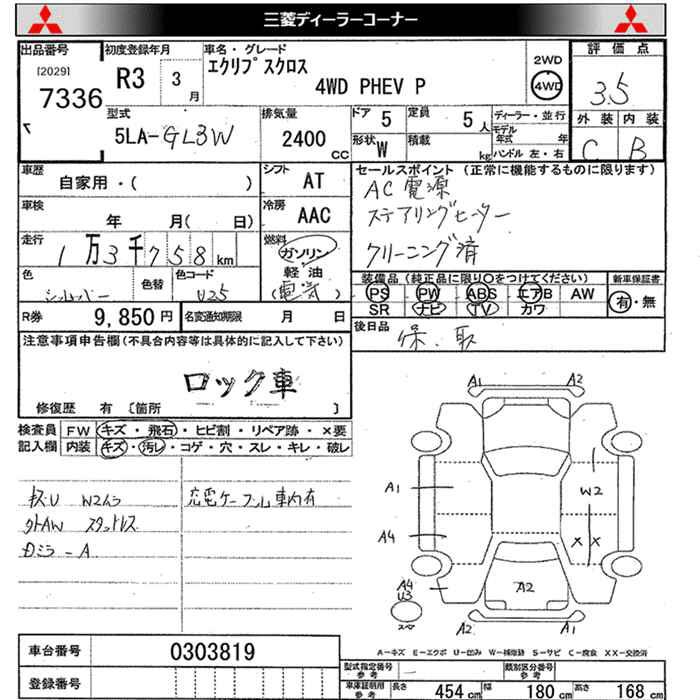 三菱ディーラーコーナー
出品番号
[2029]
7336
初度登録年月
R3 3 月
車名・グレード
エクリプスクロス
4WD PHEV P
2WD
4WD
評価点
3.5
外装 内装
C B
型式
5LA-GL3W
排気量
2400 cc
ドア 5
定員 5 人
形状 W
積載 kg
ディーラー・並行
モデル年式 年
ハンドル 左・右
車歴
自家用・( )
シフト AT
車検
年 月( 日)
冷房 AAC
走行
1万3千758km
燃料
ガソリン
軽油
(電気)
色
シルバー
色替
色コード
U25
R券 9,850円
名変通知期限 月 日
セールスポイント (正常に機能するものに限ります)
AC電源
ステアリングヒーター
クリーニング済
装備品(純正品に限り〇をつけてください)
新車保証書
PS PW ABS エアB AW
SR ナビ TV カワ
有・無
後日品
保.取
注意事項申告欄(不具合内容等は具体的に記入して下さい)
ロック車
修復歴 有 [箇所 ]
検査員 FW キズ・飛石・ヒビ割・リペア跡・×要
記入欄 内装 キズ・汚レ・コゲ・穴・スレ・キレ・破レ
外AW スタッドレス
Dミラ-A
充電ケーブル車内有
A1 A2
A1
W2
A4
× ×
A4
U3
スペア
A2
A2 A1
A-キズ E-エクボ U-凹み W-補修跡 S-サビ C-腐食 XX-交換済
車台番号 0303819
登録番号
型式指定番号
参考
類別区分番号
参考
車庫証明用
参考
長さ 454 cm
幅 180 cm
高さ 168 cm